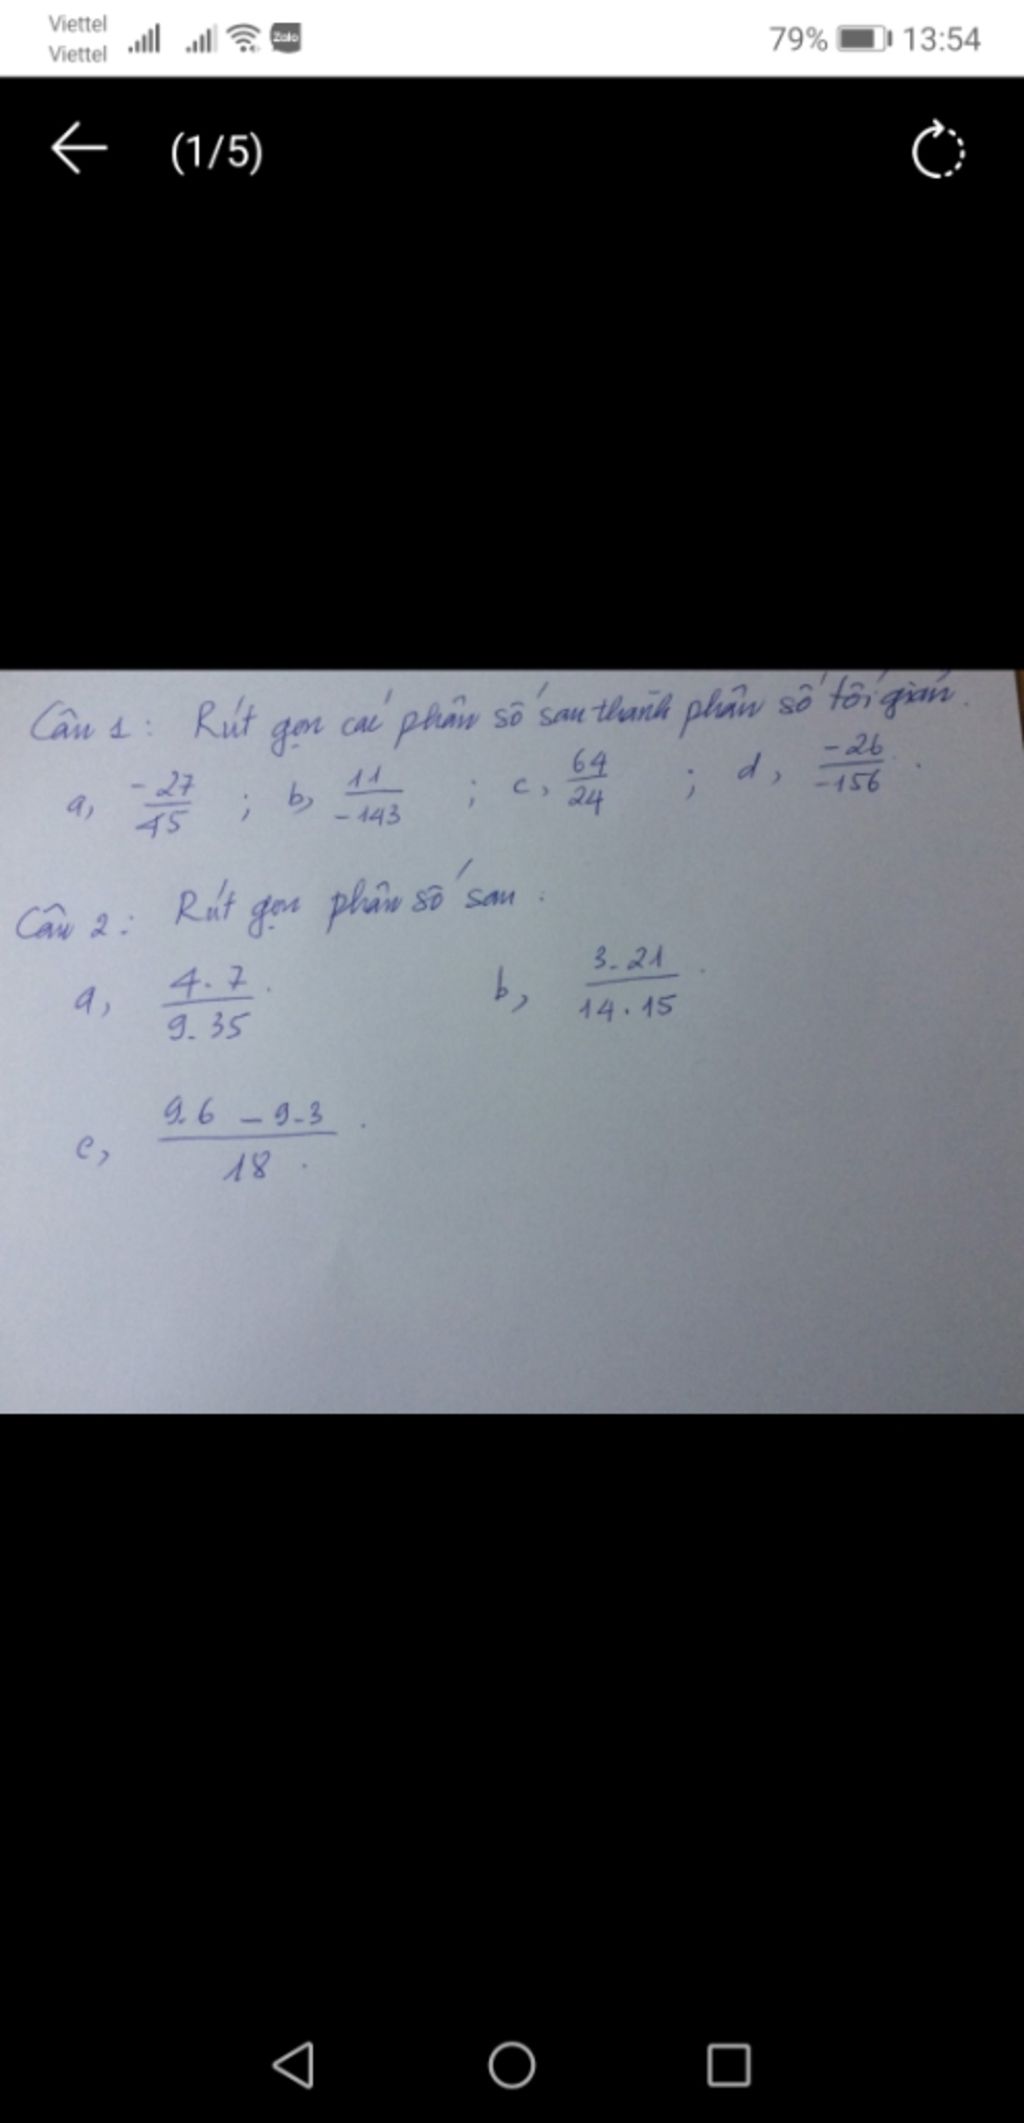 Viettel
Viettel
Zalo
79% 13:54
(1/5)
Câu 1: Rút gọn các phân số sau thành phân số tối giản.
a, -27/45 ; b, 11/-143 ; c, 64/24 ; d, -26/-156.
Câu 2: Rút gọn phân số sau:
a, 4.7/9.35. b, 3.21/14.15.
c, 9.6 - 9.3/18.